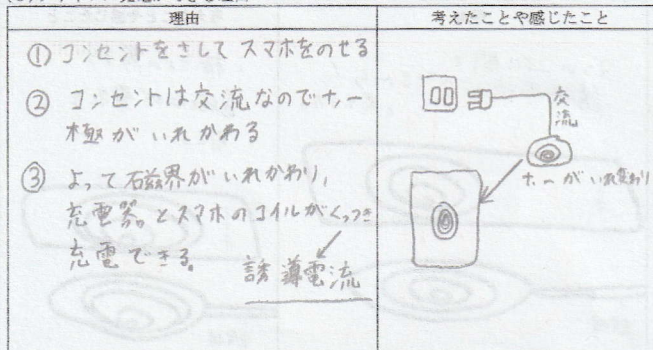 理由
考えたことや感じたこと
① コンセントをさして スマホをのせる
② コンセントは交流なので+、-
極がいれかわる
③ よって磁界がいれかわり、
充電器とスマホのコイルがくっつき
充電できる。
誘導電流
交流
+、-がいれ変わり